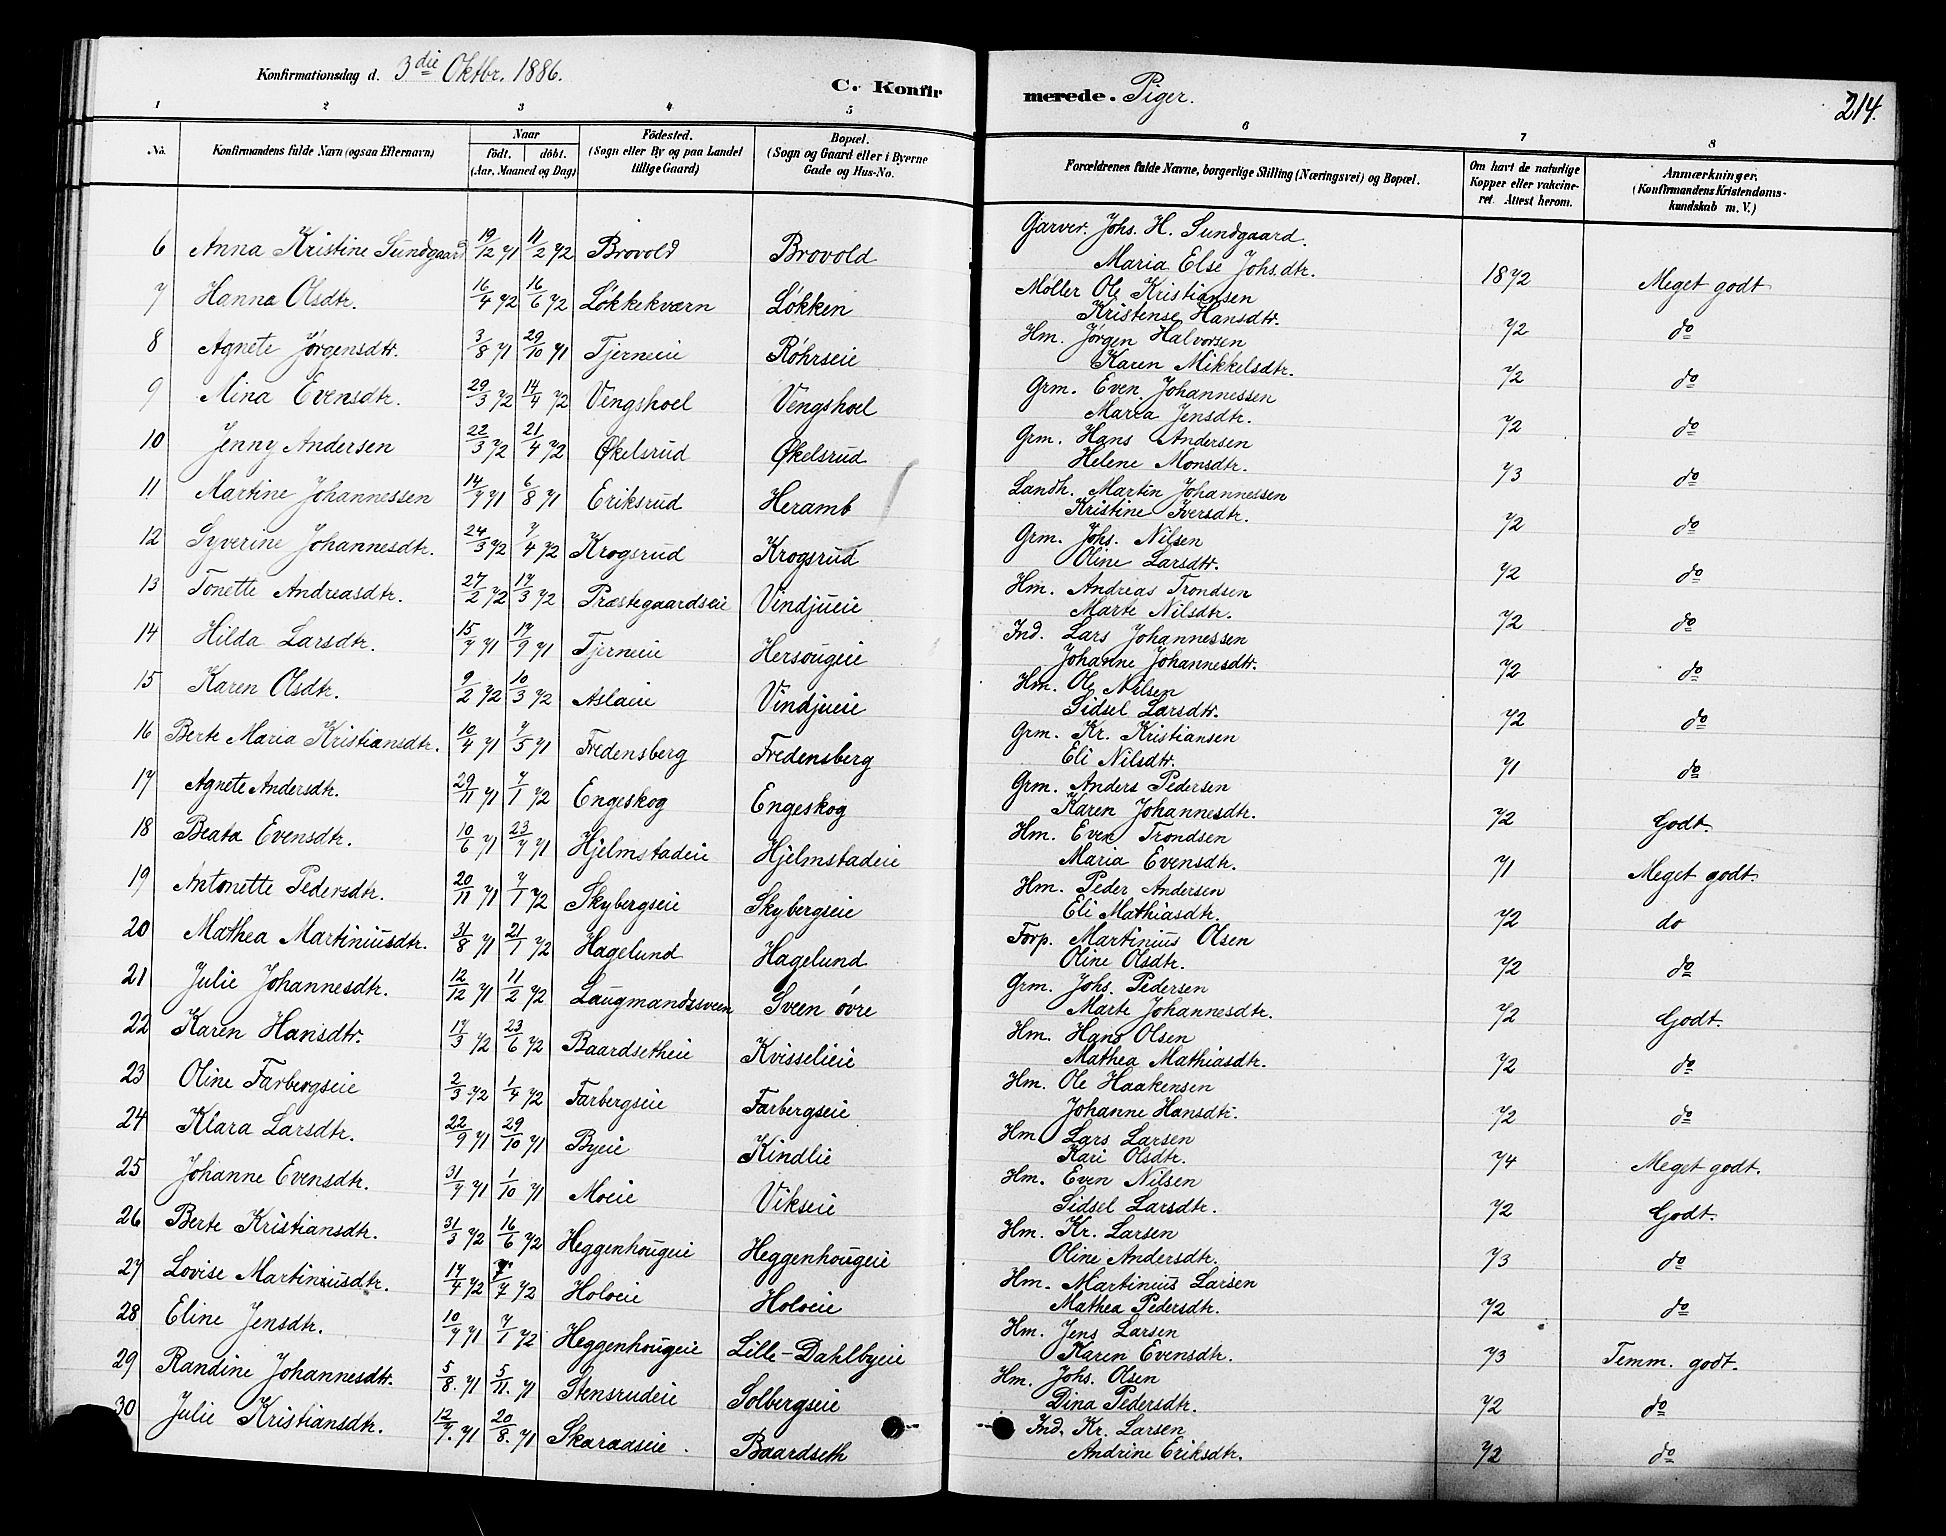 Konfirmationsdag d. 3die Oktbr. 1886.
C. Konfirmerede. Piger.
214.
1 2 3 4 5 6 7 8
No. Konfirmandens fulde Navn (ogsaa Efternavn) Naar födt. döbt. (Aar, Maaned og Dag) Födested. (Sogn eller By og paa Landet tillige Gaard) Bopæl. (Sogn og Gaard eller i Byerne Gade og Hus-No. Forældrenes fulde Navne, borgerlige Stilling (Næringsvei) og Bopæl. Om havt de naturlige Kopper eller vakcineret. Attest herom. Anmærkninger. (Konfirmandens Kristendomskundskab m. V.)
6 Anna Kristine Sundgaard 19/12 71 11/2 72 Brovold Brovold Garver. Johs. H. Sundgaard. Maria Else Johs.dtr. 1872 Meget godt
7 Hanna Olsdtr. 16/4 72 16/6 72 Løkkekværn Løkken Møller Ole Kristiansen Kristense Hansdtr. 72 do
8 Agnete Jørgensdtr. 3/8 71 29/10 71 Tjerneie Røhrseie Hm. Jørgen Halvorsen Karen Mikkelsdtr. 72 do
9 Mina Evensdtr. 29/3 72 14/4 72 Vengshoel Vengshoel Grm. Even Johannessen Maria Jensdtr. 72 do
10 Jenny Andersen 22/3 72 21/4 72 Økelsrud Økelsrud Grm. Hans Andersen Helene Monsdtr. 73 do
11 Martine Johannessen 14/7 71 6/8 71 Eriksrud Heramb Landh. Martin Johannessen Kristine Iversdtr. 72 do
12 Syverine Johannesdtr. 24/3 72 7/4 72 Krogsrud Krogsrud Grm. Johs. Nilsen Oline Larsdtr. 72 do
13 Tonette Andreasdtr. 27/2 72 17/3 72 Præstegaardseie Vindjueie Hm. Andreas Trondsen Marte Nilsdtr. 72 do
14 Hilda Larsdtr. 15/7 71 17/9 71 Tjerneie Hersougeie Ind. Lars Johannessen Johanne Johannesdtr. 72 do
15 Karen Olsdtr. 9/2 72 10/3 72 Aslaeie Vindjueie Hm. Ole Nilsen Sidsel Larsdtr. 72 do
16 Berte Maria Kristiansdtr. 10/4 71 7/5 71 Fredensberg Fredensberg Grm. Kr. Kristiansen Eli Nilsdtr. 71 do
17 Agnete Andersdtr. 29/11 71 7/1 72 Engeskog Engeskog Grm. Anders Pedersen Karen Johannesdtr. 72 Godt.
18 Beata Evensdtr. 10/6 71 23/7 71 Hjelmstadeie Hjelmstadeie Hm. Even Trondsen Maria Evensdtr. 71 Meget godt.
19 Antonette Pedersdtr. 20/11 71 7/1 72 Skybergseie Skybergseie Hm. Peder Andersen Eli Mathiasdtr. 72 do
20 Mathea Martiniusdtr. 31/8 71 21/1 72 Hagelund Hagelund Forp. Martinius Olsen Oline Olsdtr. 72 do
21 Julie Johannesdtr. 12/12 71 11/2 72 Laugmandssveen Sveen øvre Grm. Johs. Pedersen Marte Johannesdtr. 72 Godt.
22 Karen Hansdtr. 17/3 72 23/6 72 Baardsetheie Kvisselieie Hm. Hans Olsen Mathea Mathiasdtr. 72 do
23 Oline Farbergseie 2/3 72 1/4 72 Farbergseie Farbergseie Hm. Ole Haakensen Johanne Hansdtr. 72 do
24 Klara Larsdtr. 22/9 71 29/10 71 Byeie Kindlie Hm Lars Larsen Kari Olsdtr. 74 Meget godt.
25 Johanne Evensdtr. 31/7 71 1/10 71 Moeie Vikseie Hm. Even Nilsen Sidsel Larsdtr. 72 Godt.
26 Berte Kristiansdtr. 31/3 72 16/6 72 Heggenhougeie Heggenhougeie Hm. Kr. Larsen Oline Andersdtr. 73 do
27 Lovise Martiniusdtr. 17/4 72 7/7 72 Holoeie Holoeie Hm. Martinius Larsen Mathea Pedersdtr. 72 do
28 Eline Jensdtr. 10/7 71 7/1 72 Heggenhougeie Lille-Dahlbyeie Hm. Jens Larsen Karen Evensdtr. 73 Temm. godt.
29 Randine Johannesdtr. 5/8. 71 5/11. 71 Stensrudeie Solbergseie Hm. Johs. Olsen Dina Pedersdtr. 72 do
30 Julie Kristiansdtr. 12/7. 71 20/8. 71 Skaraaseie. Baardseth Ind. Kr. Larsen Andrine Eriksdtr. 72 do